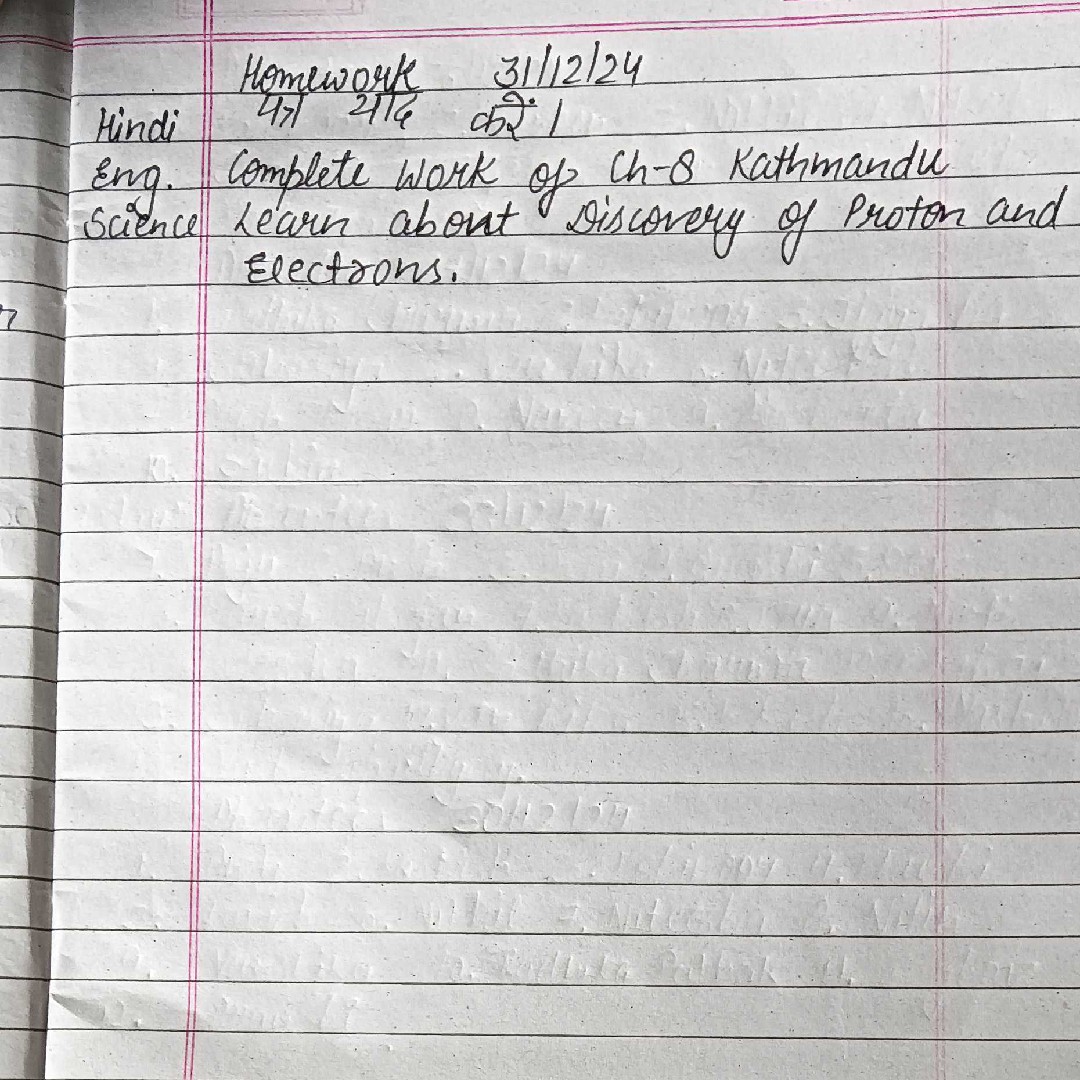 Homework 31/12/24
Hindi पत्र याद करें।
Eng. Complete work of Ch-8 Kathmandu
Science Learn about Discovery of Proton and
Electrons.